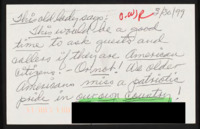 This old lady says: O.W.R 3/30/99
This would be a good
time to ask guests and
callers if they are American
citizens! - Or not! We older
Americans miss a patriotic
pride in our country!